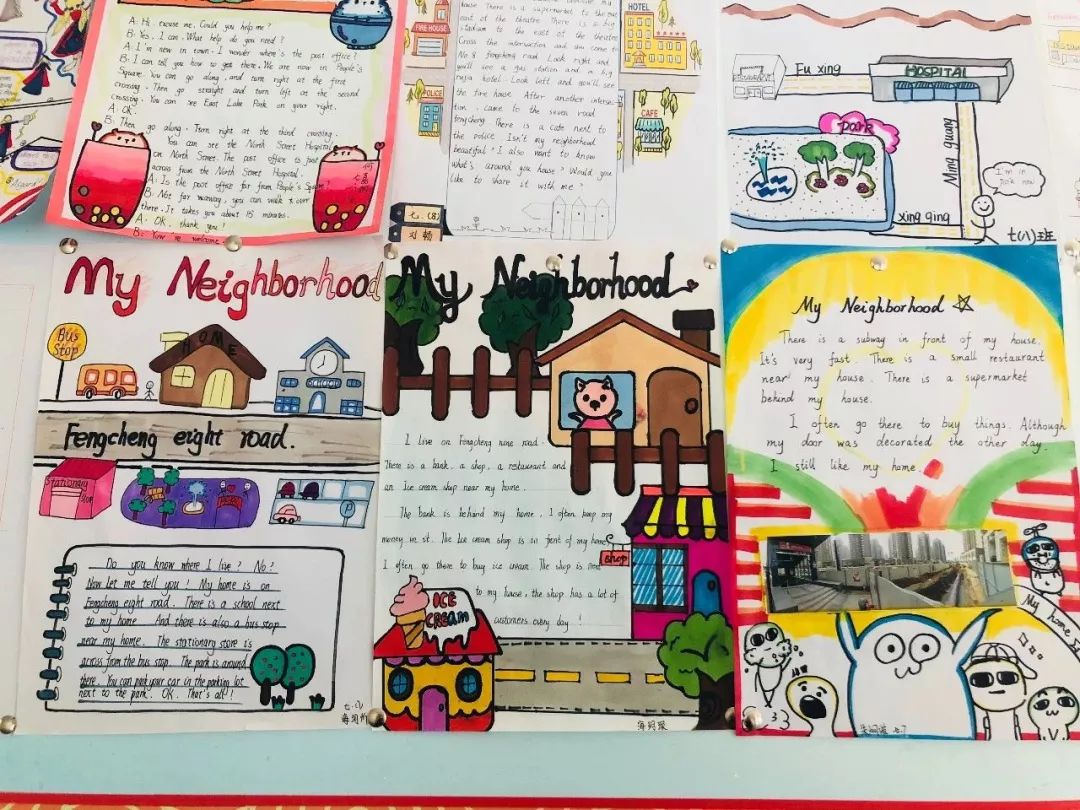 A: Hi, excuse me. Could you help me?
B: Yes, I can. What help do you need?
A: I'm new in town. I wonder where's the post office?
B: I can tell you how to get there. We are now in People's
Square. You can go along, and turn right at the first
crossing. Then go straight and turn left at the second
crossing. You can see East Lake Park on your right.
A: OK.
B: Then go along. Turn right at the third crossing.
You can see the North Street Hospital
on North Street. The post office is just
across from the North Street Hospital.
A: Is the post office far from People's Square?
B: Not far away, you can walk over
there. It takes you about 15 minutes.
A: OK, thank you!
B: You're welcome.
FIRE HOUSE
POLICE
HOTEL
CAFE
house. There is a supermarket to the
east of the theatre. There is a
stadium to the east of the theatre
Cross the intersection and
No 8 Fengcheng road. Look right and
you'll see a gas station and a big
hotel. Look left and you'll see
the fire house. After another intersec-
tion, came to the seven road
fengcheng. There is a cafe next to
the police. Isn't my neighborhood
beautiful? I also want to know
what's around you house? Would you
like to share it with me?
七.(8)
Fu xing
HOSPITAL
park
Ming guang
I'm in
park now
xing qing
七(八)班
My Neighborhood
Bus
Stop
HOME
Fengcheng eight road.
Stationary
P
Do you know where I live? No?
Now let me tell you! My home is on
Fengcheng eight road. There is a school next
to my home. And there is also a bus stop
near my home. The stationary store is
across from the bus stop. The park is around
there. You can park your car in the parking lot
next to the park. OK. That's all!
My Neighborhood
I live on Fengcheng nine road.
There is a bank, a shop, a restaurant and
an Ice cream shop near my home.
The bank is behand my home, I often keep my
money in st. The Ice cream shop is an fient of my home
I often go there to buy ice cream. The shop is next
to my hause, the shop has a lot of
customers every day!
SHOP
ICE
CREAM
My Neighborhood
There is a subway in front of my house.
It's very fast. There is a small restaurant
near my house. There is a supermarket
behind my house.
I often go there to buy things. Although
my door was decorated the other day.
I still like my home.
My home